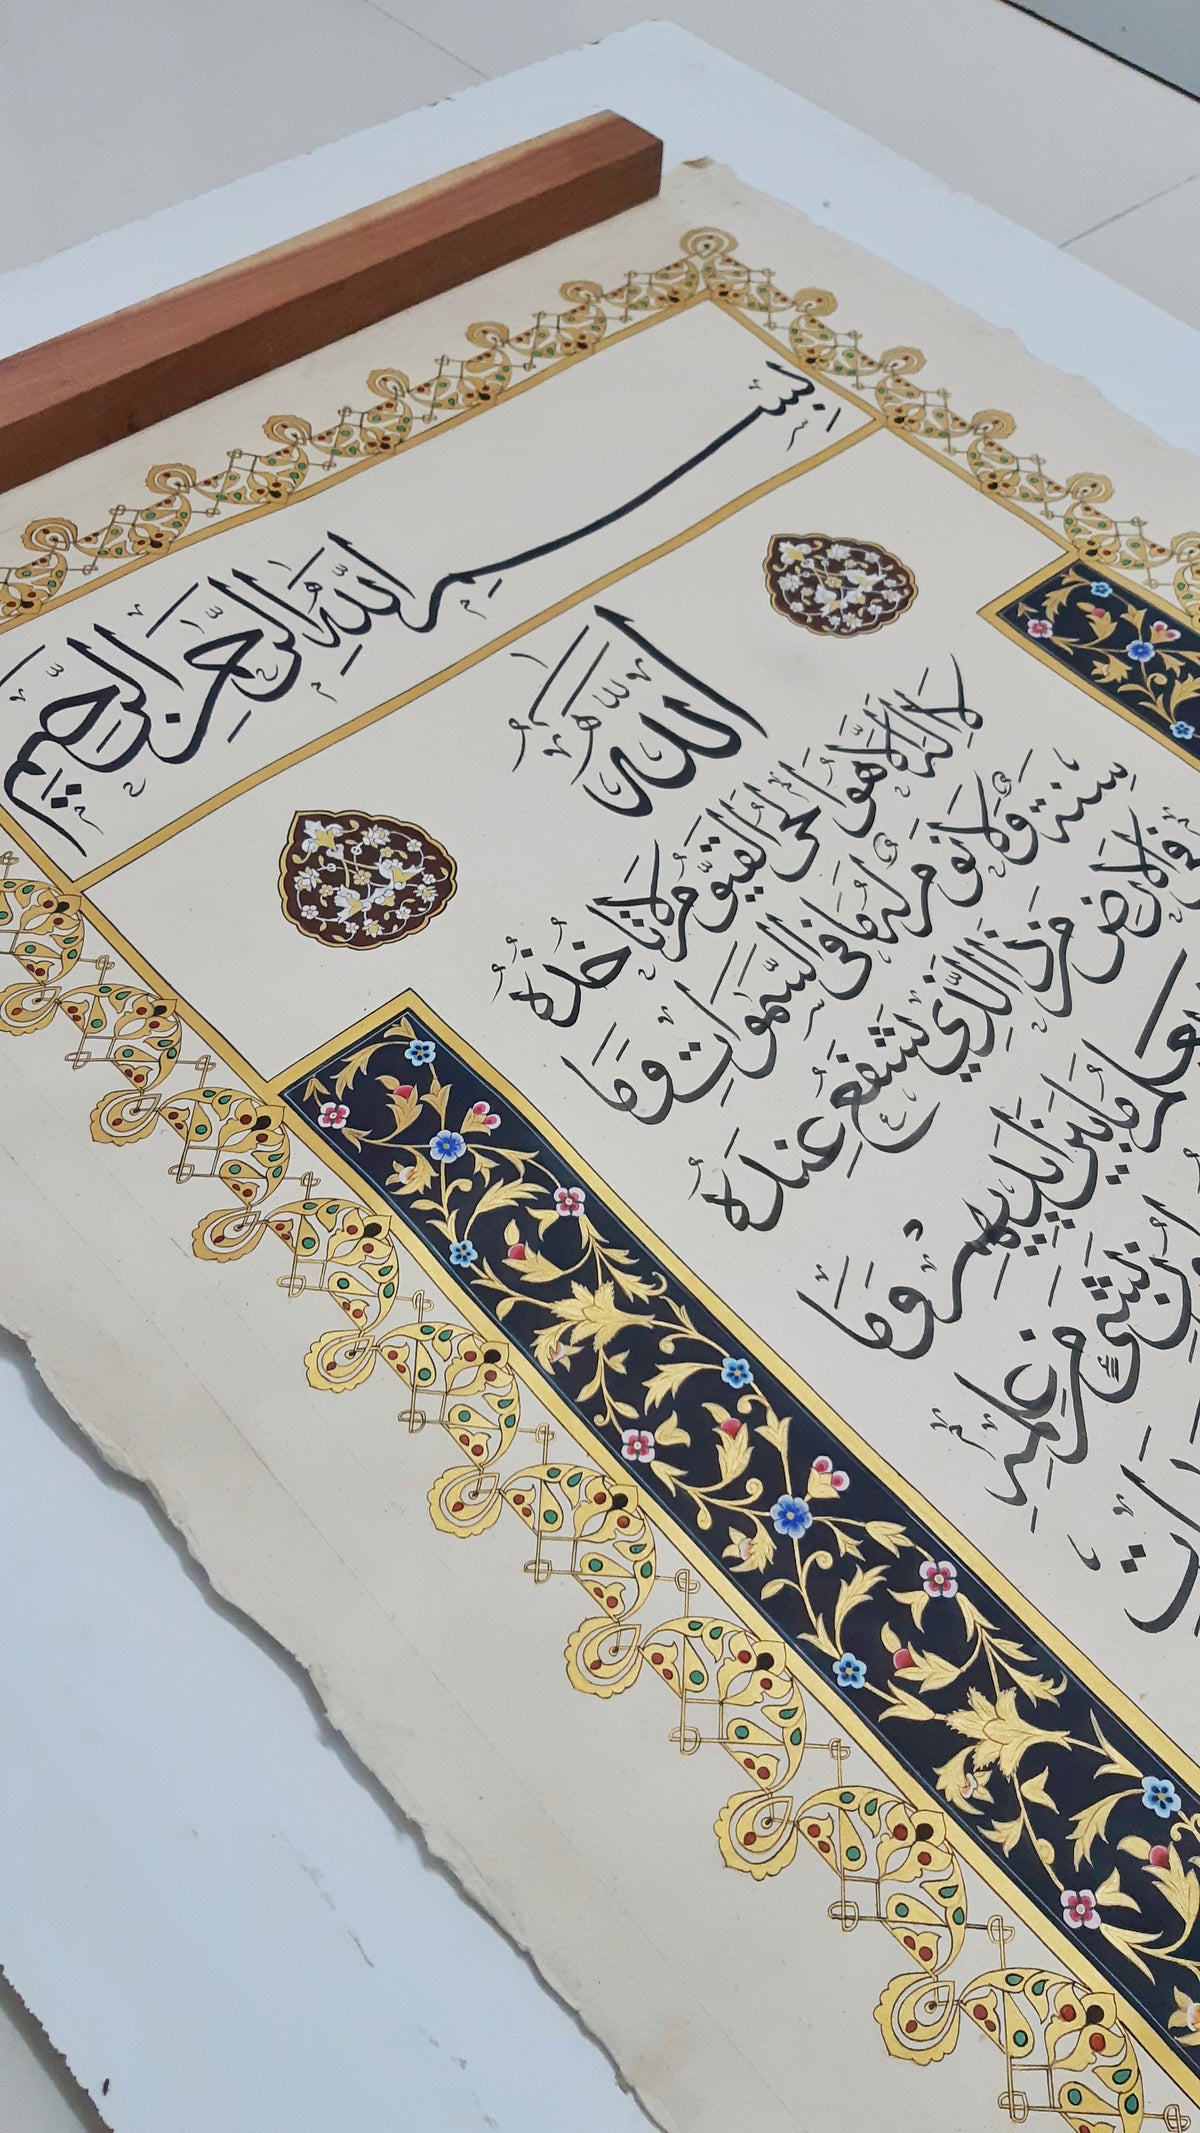 بِسْمِ اللَّهِ الرَّحْمَٰنِ الرَّحِيمِ
اللَّهُ
لَا إِلَٰهَ إِلَّا هُوَ الْحَيُّ الْقَيُّومُ لَا تَأْخُذُهُ
سِنَةٌ وَلَا نَوْمٌ لَهُ مَا فِي السَّمَٰوَاتِ وَمَا
فِي الْأَرْضِ مَنْ ذَا الَّذِي يَشْفَعُ عِنْدَهُ
يَعْلَمُ مَا بَيْنَ أَيْدِيهِمْ وَمَا
بِشَيْءٍ مِنْ عِلْمِهِ